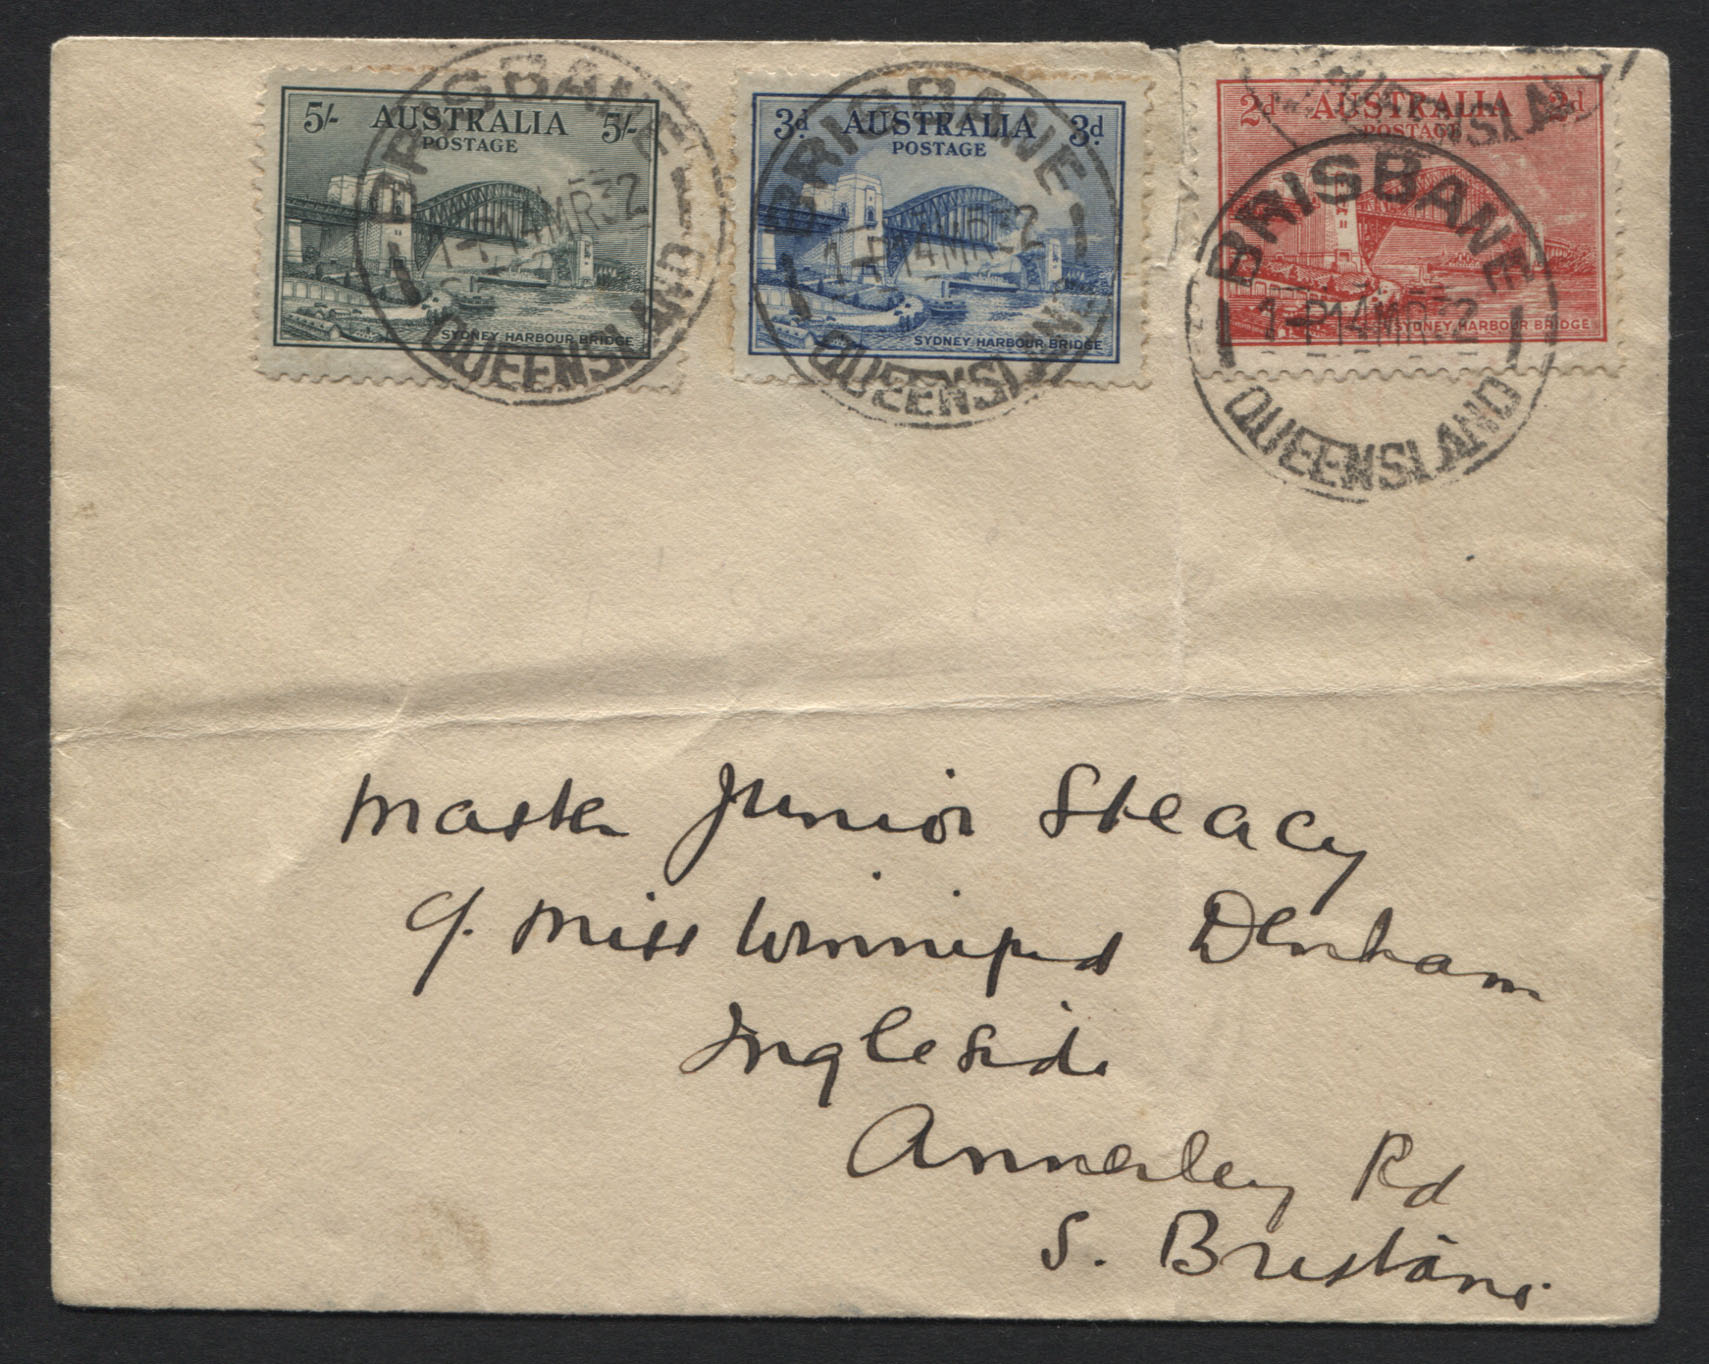 5/- AUSTRALIA 5/-
POSTAGE
SYDNEY HARBOUR BRIDGE
BRISBANE
1-P14MR32
QUEENSLAND
3d AUSTRALIA 3d
POSTAGE
SYDNEY HARBOUR BRIDGE
BRISBANE
1-P14MR32
QUEENSLAND
2d AUSTRALIA 2d
POSTAGE
SYDNEY HARBOUR BRIDGE
QUEENSLAND
BRISBANE
1-P14MR32
QUEENSLAND
Master Junior Steacy
c/. Miss Winnifred Denham
Ingleside
Annerley Rd
S. Brisbane